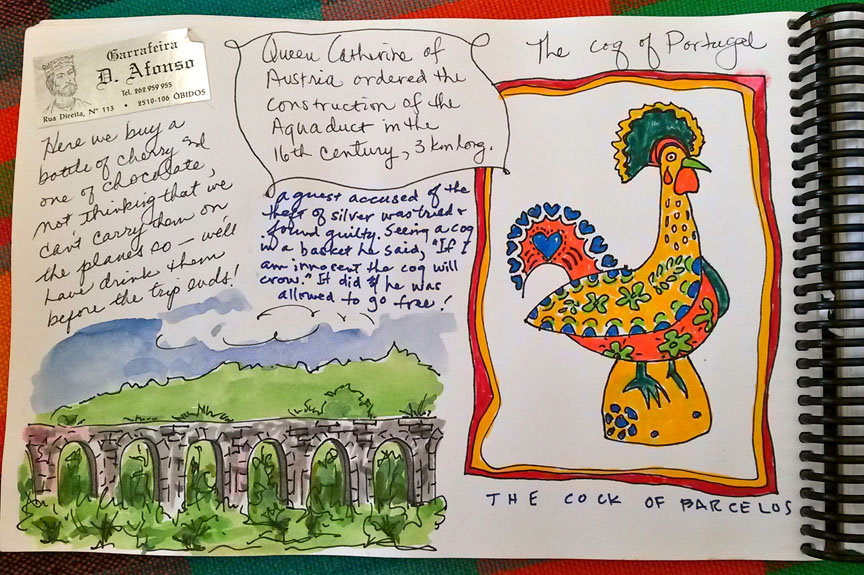 Garrafeira
D. Afonso
Tel. 262 959 955
Rua Direita, Nº 113 • 2510-106 ÓBIDOS
Here we buy a
bottle of cherry and
one of chocolate,
not thinking that we
can't carry them on
the planes so — we'll
have drink them
before the trip ends!
Queen Catherine of
Austria ordered the
construction of the
Aquaduct in the
16th century, 3 km long.
a guest accused of the
theft of silver was tried +
found guilty. Seeing a coq
in a basket he said, "If I
am innocent the coq will
crow." It did & he was
allowed to go free!
The coq of Portugal
THE COCK OF BARCELOS